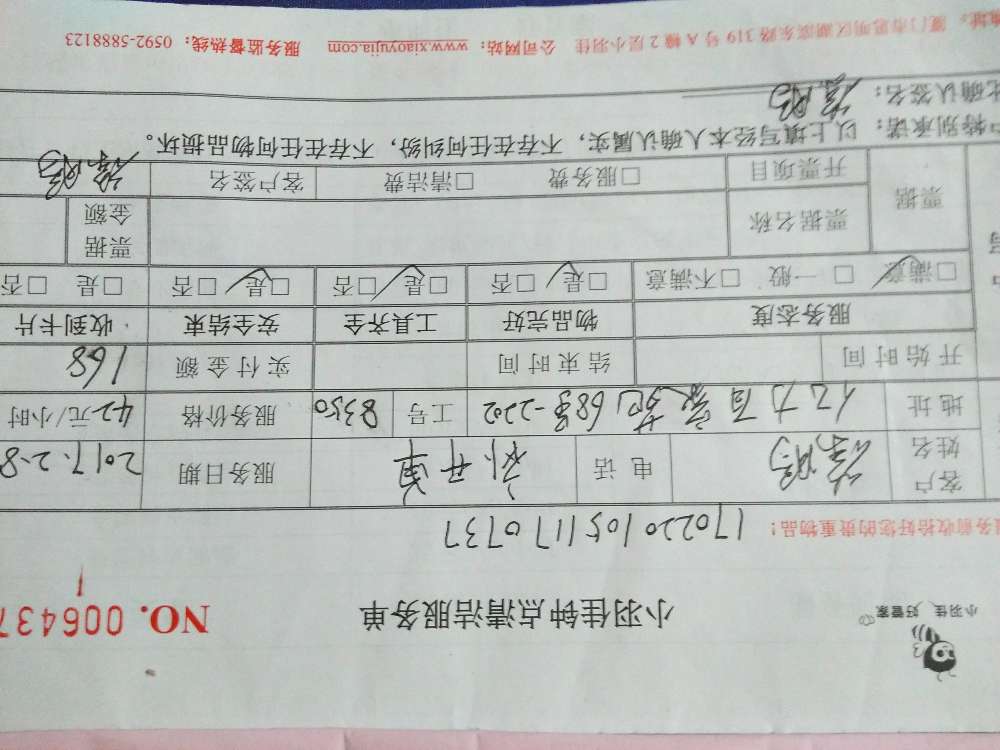 小羽佳 好管家
小羽佳钟点清洁服务单 NO. 006437
服务前收拾好您的贵重物品! 170220105117 0737
客户姓名 电话 补开单 服务日期 2017.2.8
地址 亿力百家苑68号-2202 工号 8350 服务价格 42元/小时
开始时间 结束时间 实付金额 168
服务态度 物品完好 工具齐全 安全结束 收到卡片
□满意 □一般 □不满意 □是 □否 □是 □否 □是 □否 □是 □否
票据 票据名称 票据金额
开票项目 □服务费 □清洁费 客户签名
特别承诺:以上填写经本人确认属实,不存在任何纠纷,不存在任何物品损坏。
此确认签名:
地址:厦门市思明区湖滨东路319号A幢2层小羽佳 公司网站:www.xiaoyujia.com 服务监督热线:0592-5888123